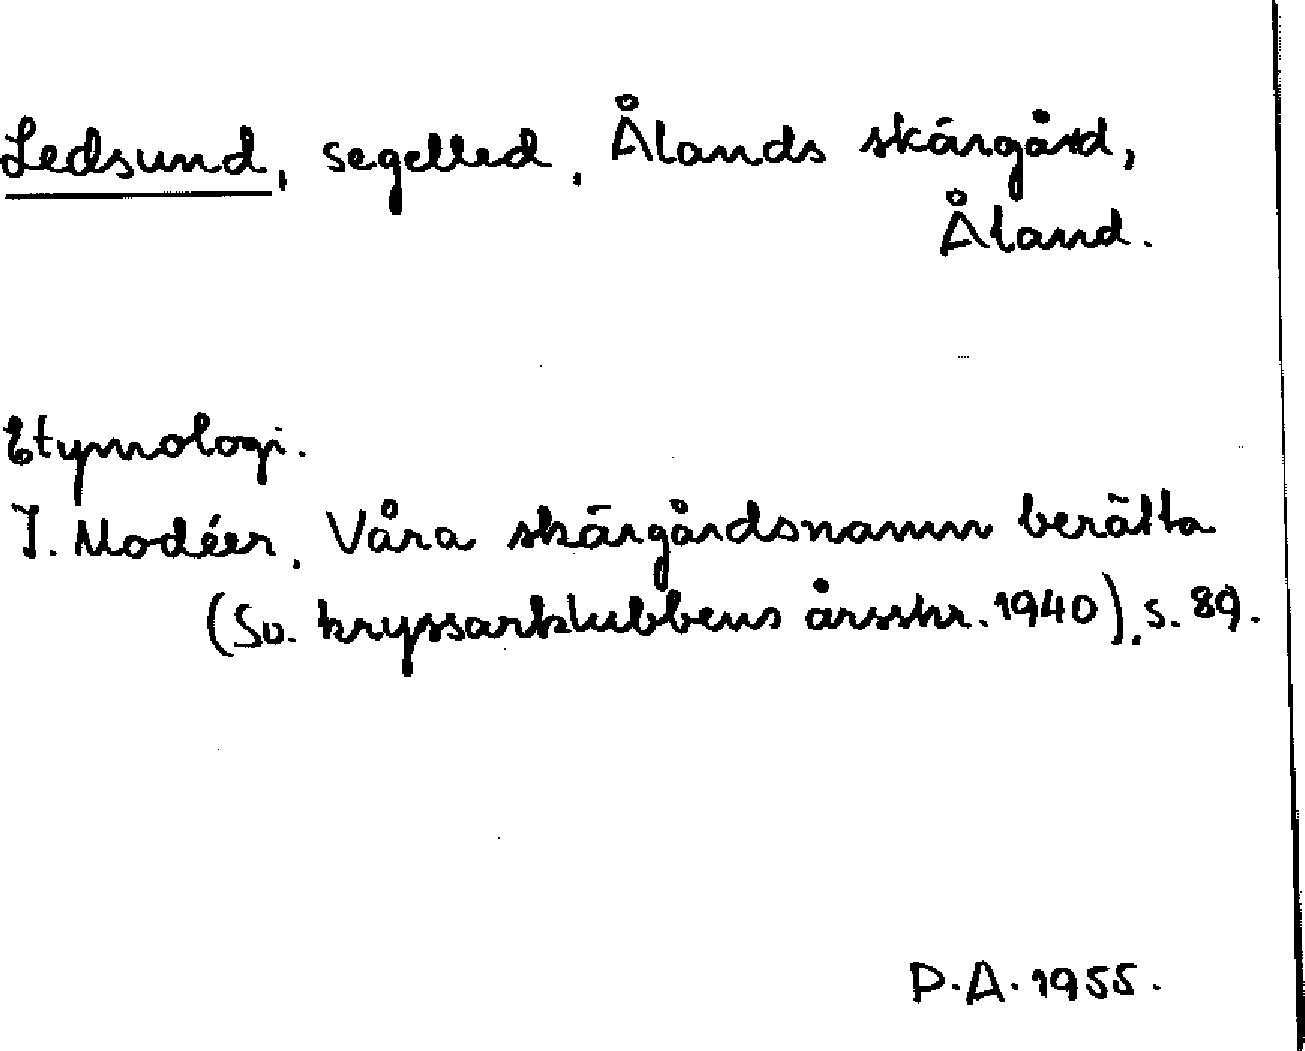 Ledsund, segelled, Ålands skärgård,
Åland.
Etymologi.
I. Modéer, Våra skärgårdsnamn berätta
(Sv. kryssarklubbens årsskr. 1940), s. 89.
P.A. 1955.